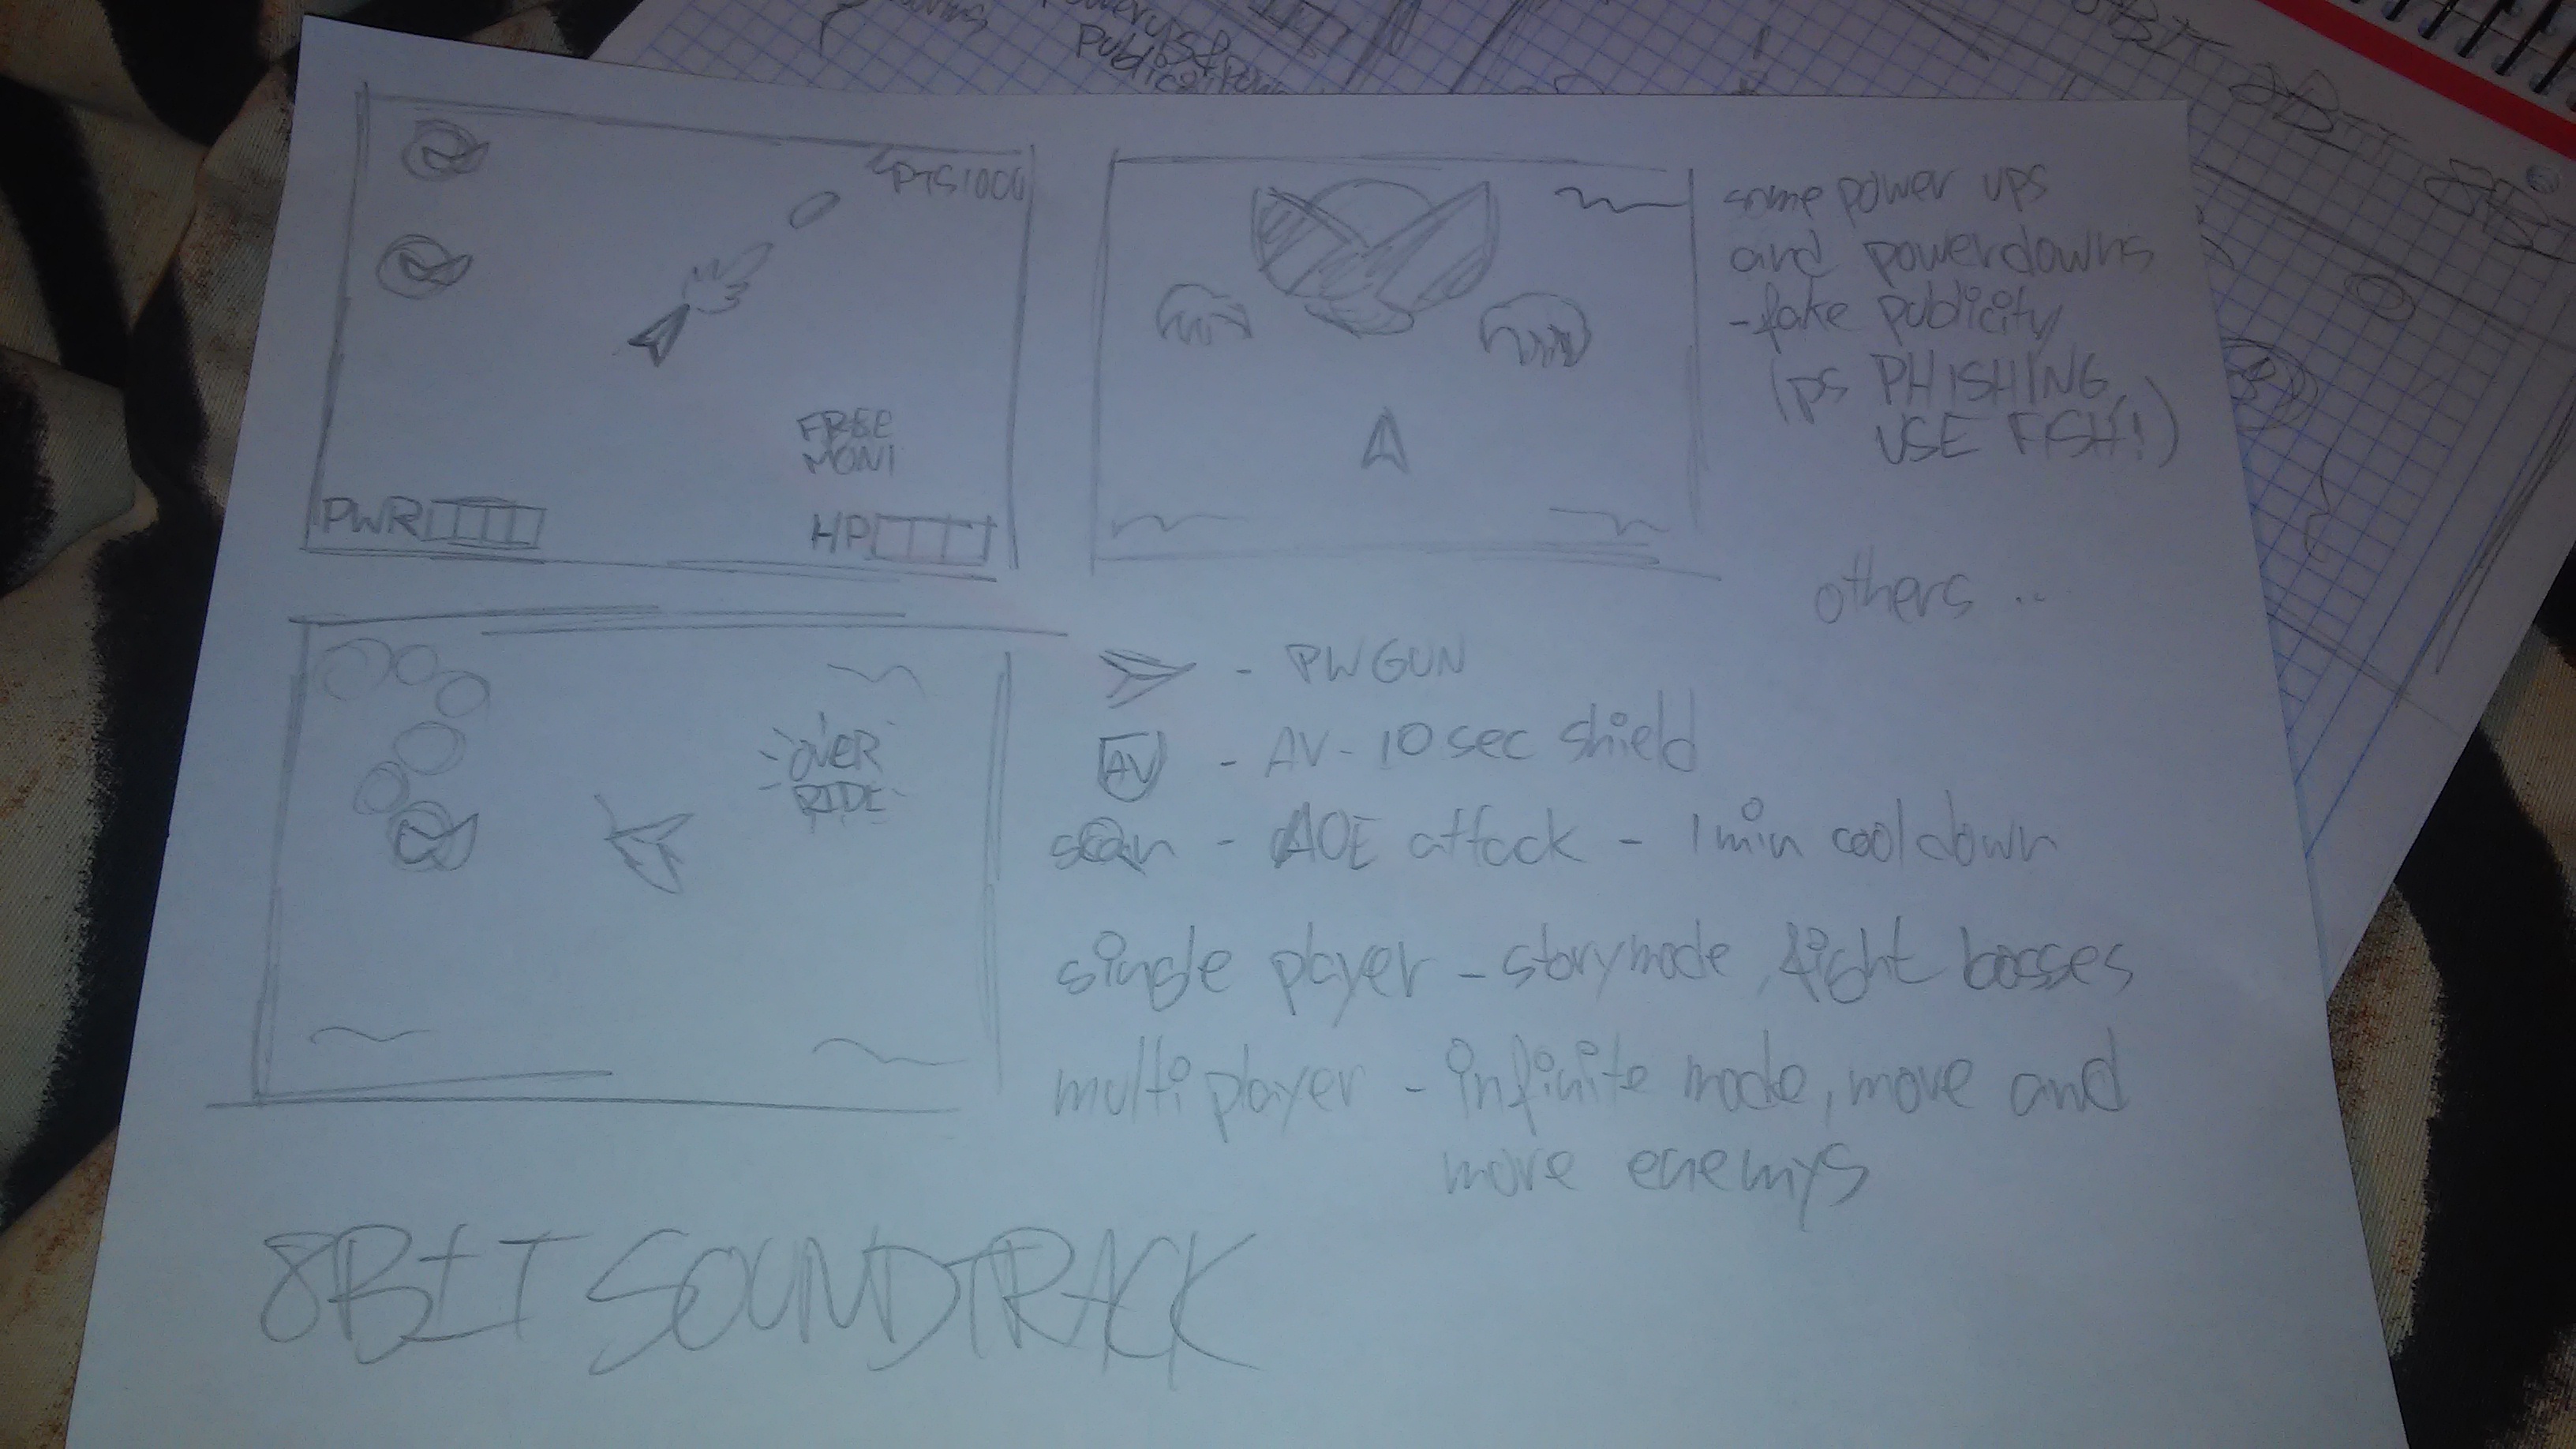 PTS1000
FREE
MONI
PWR
HP
some power ups
and powerdowns
- fake publicity
(ps PHISHING,
USE FISH!)
others ..
OVER
RIDE
- PWGUN
AV - AV - 10 sec shield
scan - AOE attack - 1 min cooldown
single player - storymode, fight bosses
multiplayer - infinite mode, move and
more enemys
8BIT SOUNDTRACK
Public
8BIT